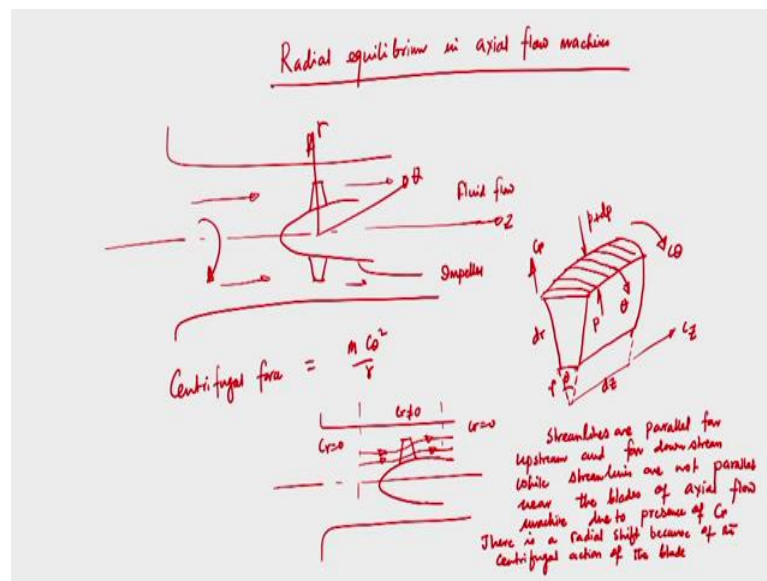 Radial equilibrium in axial flow machine
r
θ
Fluid flow
z
Impeller
p+dp
Cr
Cθ
P
θ
dr
Cz
dz
r
θ
Centrifugal force = m Cθ² / r
Cr≠0
Cr=0
Cr=0
Streamlines are parallel far
upstream and far downstream
while streamlines are not parallel
near the blades of axial flow
machine due to presence of Cr
There is a radial shift because of the
centrifugal action of the blade